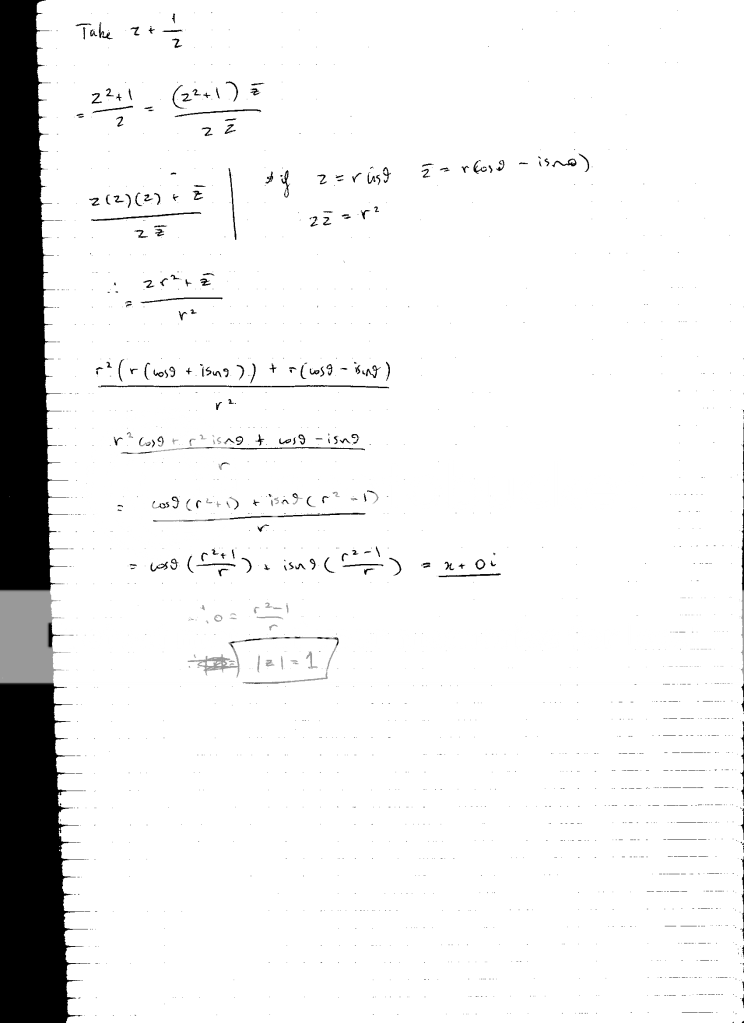 Take z + 1/z
= z²+1/z = (z²+1) z̄ / z z̄
z(z)(z̄) + z̄ / z z̄ | * if z = r cisθ z̄ = r(cosθ - isinθ)
z z̄ = r²
∴ = z r² + z̄ / r²
r²(r(cosθ + isinθ)) + r(cosθ - isinθ) / r²
r² cosθ + r² isinθ + cosθ - isinθ / r
= cosθ(r²+1) + isinθ(r²-1) / r
= cosθ (r²+1 / r) + isinθ (r²-1 / r) = x + 0i
∴ 0 = r²-1 / r
|z| = 1